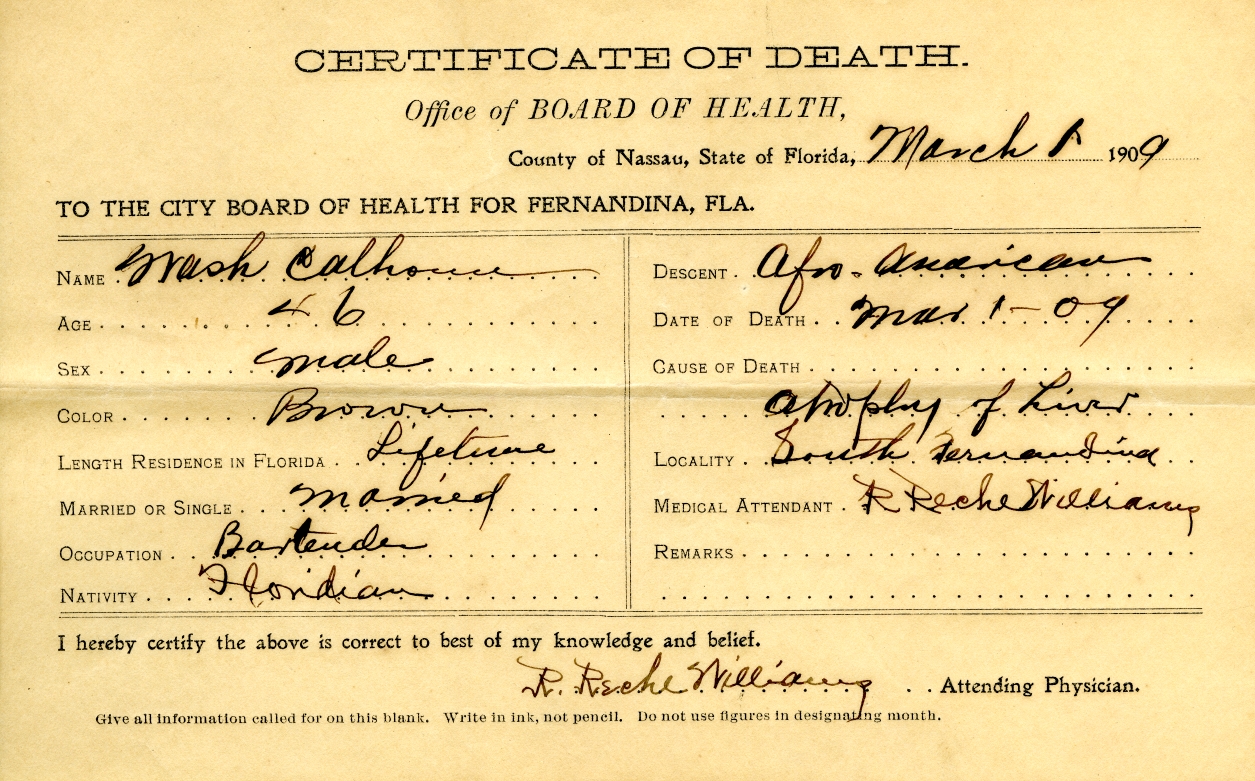 CERTIFICATE OF DEATH.
Office of BOARD OF HEALTH,
County of Nassau, State of Florida, March 1 1909
TO THE CITY BOARD OF HEALTH FOR FERNANDINA, FLA.
NAME Wash Calhoun
AGE 46
SEX male
COLOR Brown
LENGTH RESIDENCE IN FLORIDA Lifetime
MARRIED OR SINGLE married
OCCUPATION Bartender
NATIVITY Floridian
DESCENT Afro-American
DATE OF DEATH Mar 1-09
CAUSE OF DEATH
Atrophy of Liver
LOCALITY South Fernandina
MEDICAL ATTENDANT R Reche Williams
REMARKS
I hereby certify the above is correct to best of my knowledge and belief.
R. Reche Williams Attending Physician.
Give all information called for on this blank. Write in ink, not pencil. Do not use figures in designating month.